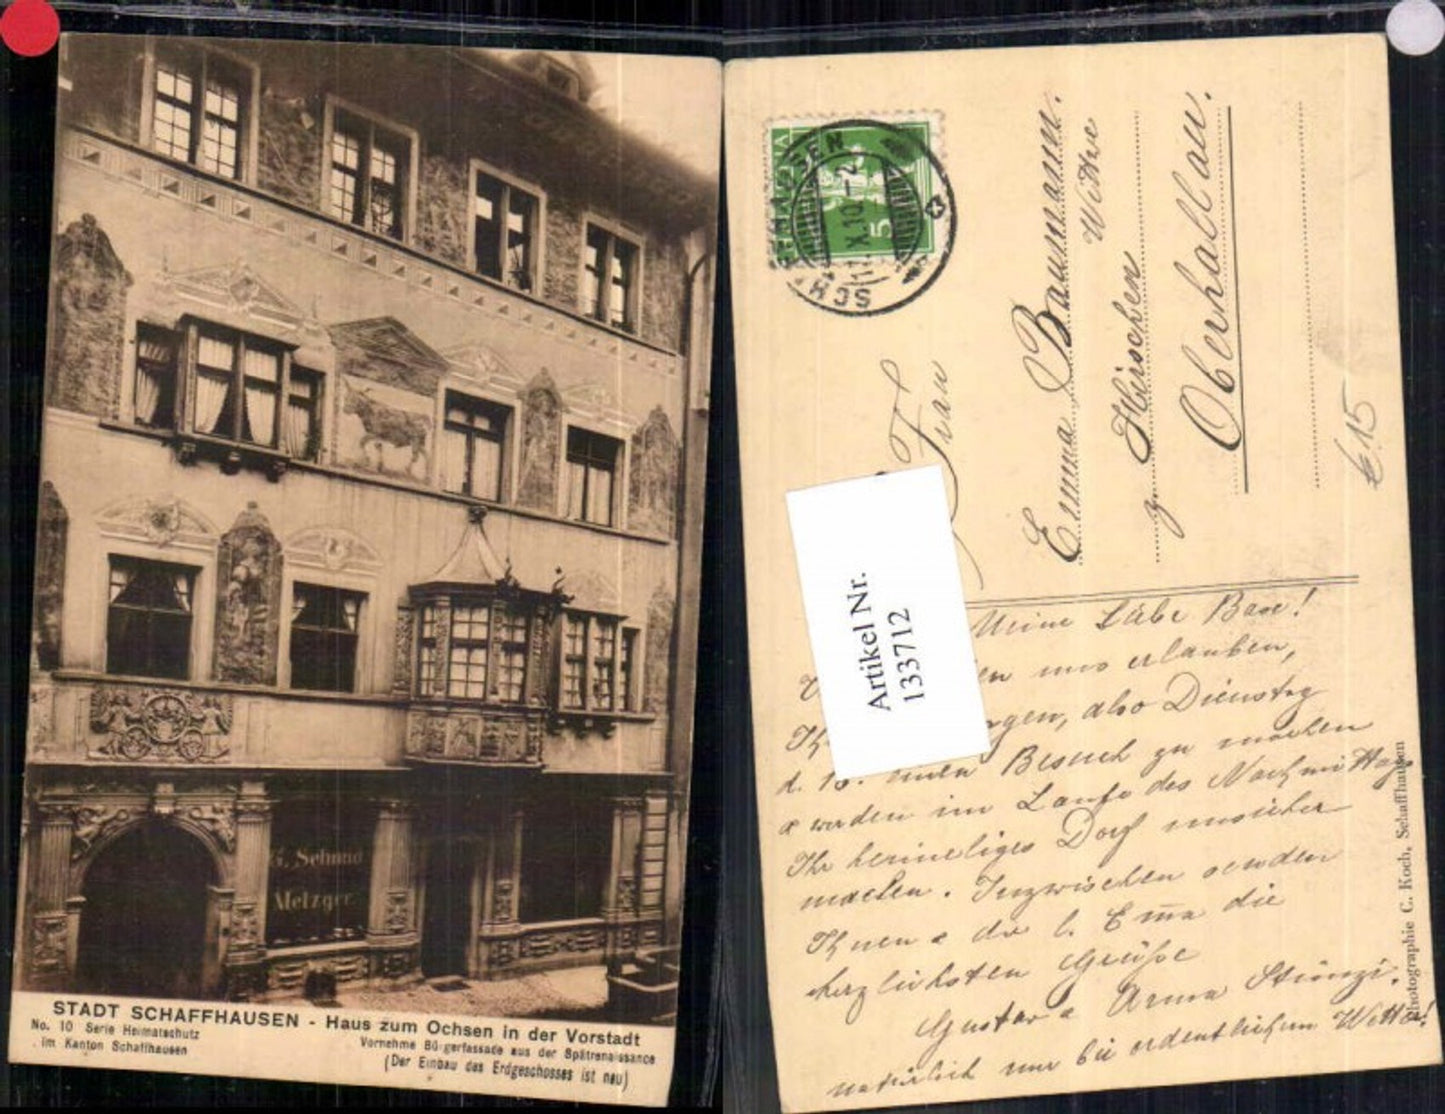 G. Schmid
Metzger.
STADT SCHAFFHAUSEN - Haus zum Ochsen in der Vorstadt
No. 10 Serie Heimatschutz
im Kanton Schaffhausen
Vornehme Bürgerfassade aus der Spätrenaissance
(Der Einbau des Erdgeschosses ist neu)
SCHAFFHAUSEN
11.X.10.-2
5
Frau
Emma Baumann.
Witwe
z Hirschen
Oberhallau.
€ 15
Artikel Nr.
133712
Meine Liebe Base!
uns erlauben,
also Dienstag
einen Besuch zu machen
& werden im Laufe des Nachmittags
Ihr heimeliges Dorf unsicher
machen. Inzwischen senden
Ihnen & die l. Emma die
herzlichsten Grüße
Gustav & Anna
natürlich nur bei ordentlichem Wetter!
Photographie C. Koch, Schaffhausen